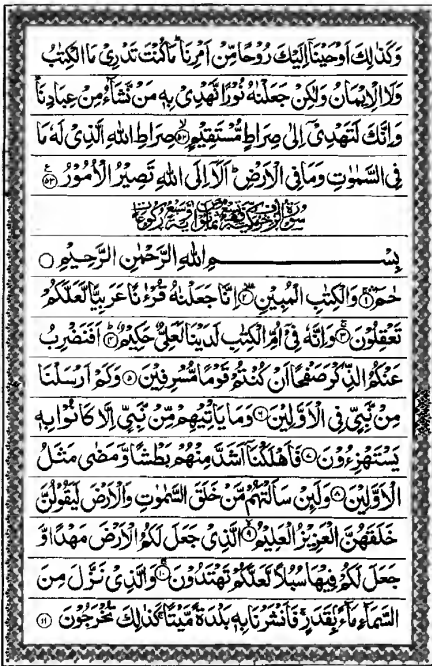 وَكَذٰلِكَ اَوْحَيْنَاۤ اِلَيْكَ رُوْحًا مِّنْ اَمْرِنَا ؕ مَا كُنْتَ تَدْرِیْ مَا الْكِتٰبُ
وَلَا الْاِيْمَانُ وَلٰكِنْ جَعَلْنٰهُ نُوْرًا نَّهْدِیْ بِهٖ مَنْ نَّشَآءُ مِنْ عِبَادِنَا ؕ
وَاِنَّكَ لَتَهْدِیْۤ اِلٰی صِرَاطٍ مُّسْتَقِيْمٍ ۟ۙ۵۲ صِرَاطِ اللّٰهِ الَّذِیْ لَهٗ مَا
فِی السَّمٰوٰتِ وَمَا فِی الْاَرْضِ ؕ اَلَاۤ اِلَی اللّٰهِ تَصِيْرُ الْاُمُوْرُ ۟۵۳
بِسْمِ اللّٰهِ الرَّحْمٰنِ الرَّحِيْمِ ۟
حٰمٓ ۟ۚۛ۱ وَالْكِتٰبِ الْمُبِيْنِ ۟ۙۛ۲ اِنَّا جَعَلْنٰهُ قُرْءٰنًا عَرَبِيًّا لَّعَلَّكُمْ
تَعْقِلُوْنَ ۟ۚ۳ وَاِنَّهٗ فِیْۤ اُمِّ الْكِتٰبِ لَدَيْنَا لَعَلِیٌّ حَكِيْمٌ ۟ؕ۴ اَفَنَضْرِبُ
عَنْكُمُ الذِّكْرَ صَفْحًا اَنْ كُنْتُمْ قَوْمًا مُّسْرِفِيْنَ ۟۵ وَكَمْ اَرْسَلْنَا
مِنْ نَّبِیٍّ فِی الْاَوَّلِيْنَ ۟۶ وَمَا يَاْتِيْهِمْ مِّنْ نَّبِیٍّ اِلَّا كَانُوْا بِهٖ
يَسْتَهْزِءُوْنَ ۟۷ فَاَهْلَكْنَاۤ اَشَدَّ مِنْهُمْ بَطْشًا وَّمَضٰی مَثَلُ
الْاَوَّلِيْنَ ۟۸ وَلَئِنْ سَاَلْتَهُمْ مَّنْ خَلَقَ السَّمٰوٰتِ وَالْاَرْضَ لَيَقُوْلُنَّ
خَلَقَهُنَّ الْعَزِيْزُ الْعَلِيْمُ ۟ۙ۹ الَّذِیْ جَعَلَ لَكُمُ الْاَرْضَ مَهْدًا وَّ
جَعَلَ لَكُمْ فِيْهَا سُبُلًا لَّعَلَّكُمْ تَهْتَدُوْنَ ۟ۚ۱۰ وَالَّذِیْ نَزَّلَ مِنَ
السَّمَآءِ مَآءًۢ بِقَدَرٍ ۚ فَاَنْشَرْنَا بِهٖ بَلْدَةً مَّيْتًا ۚ كَذٰلِكَ تُخْرَجُوْنَ ۟۱۱